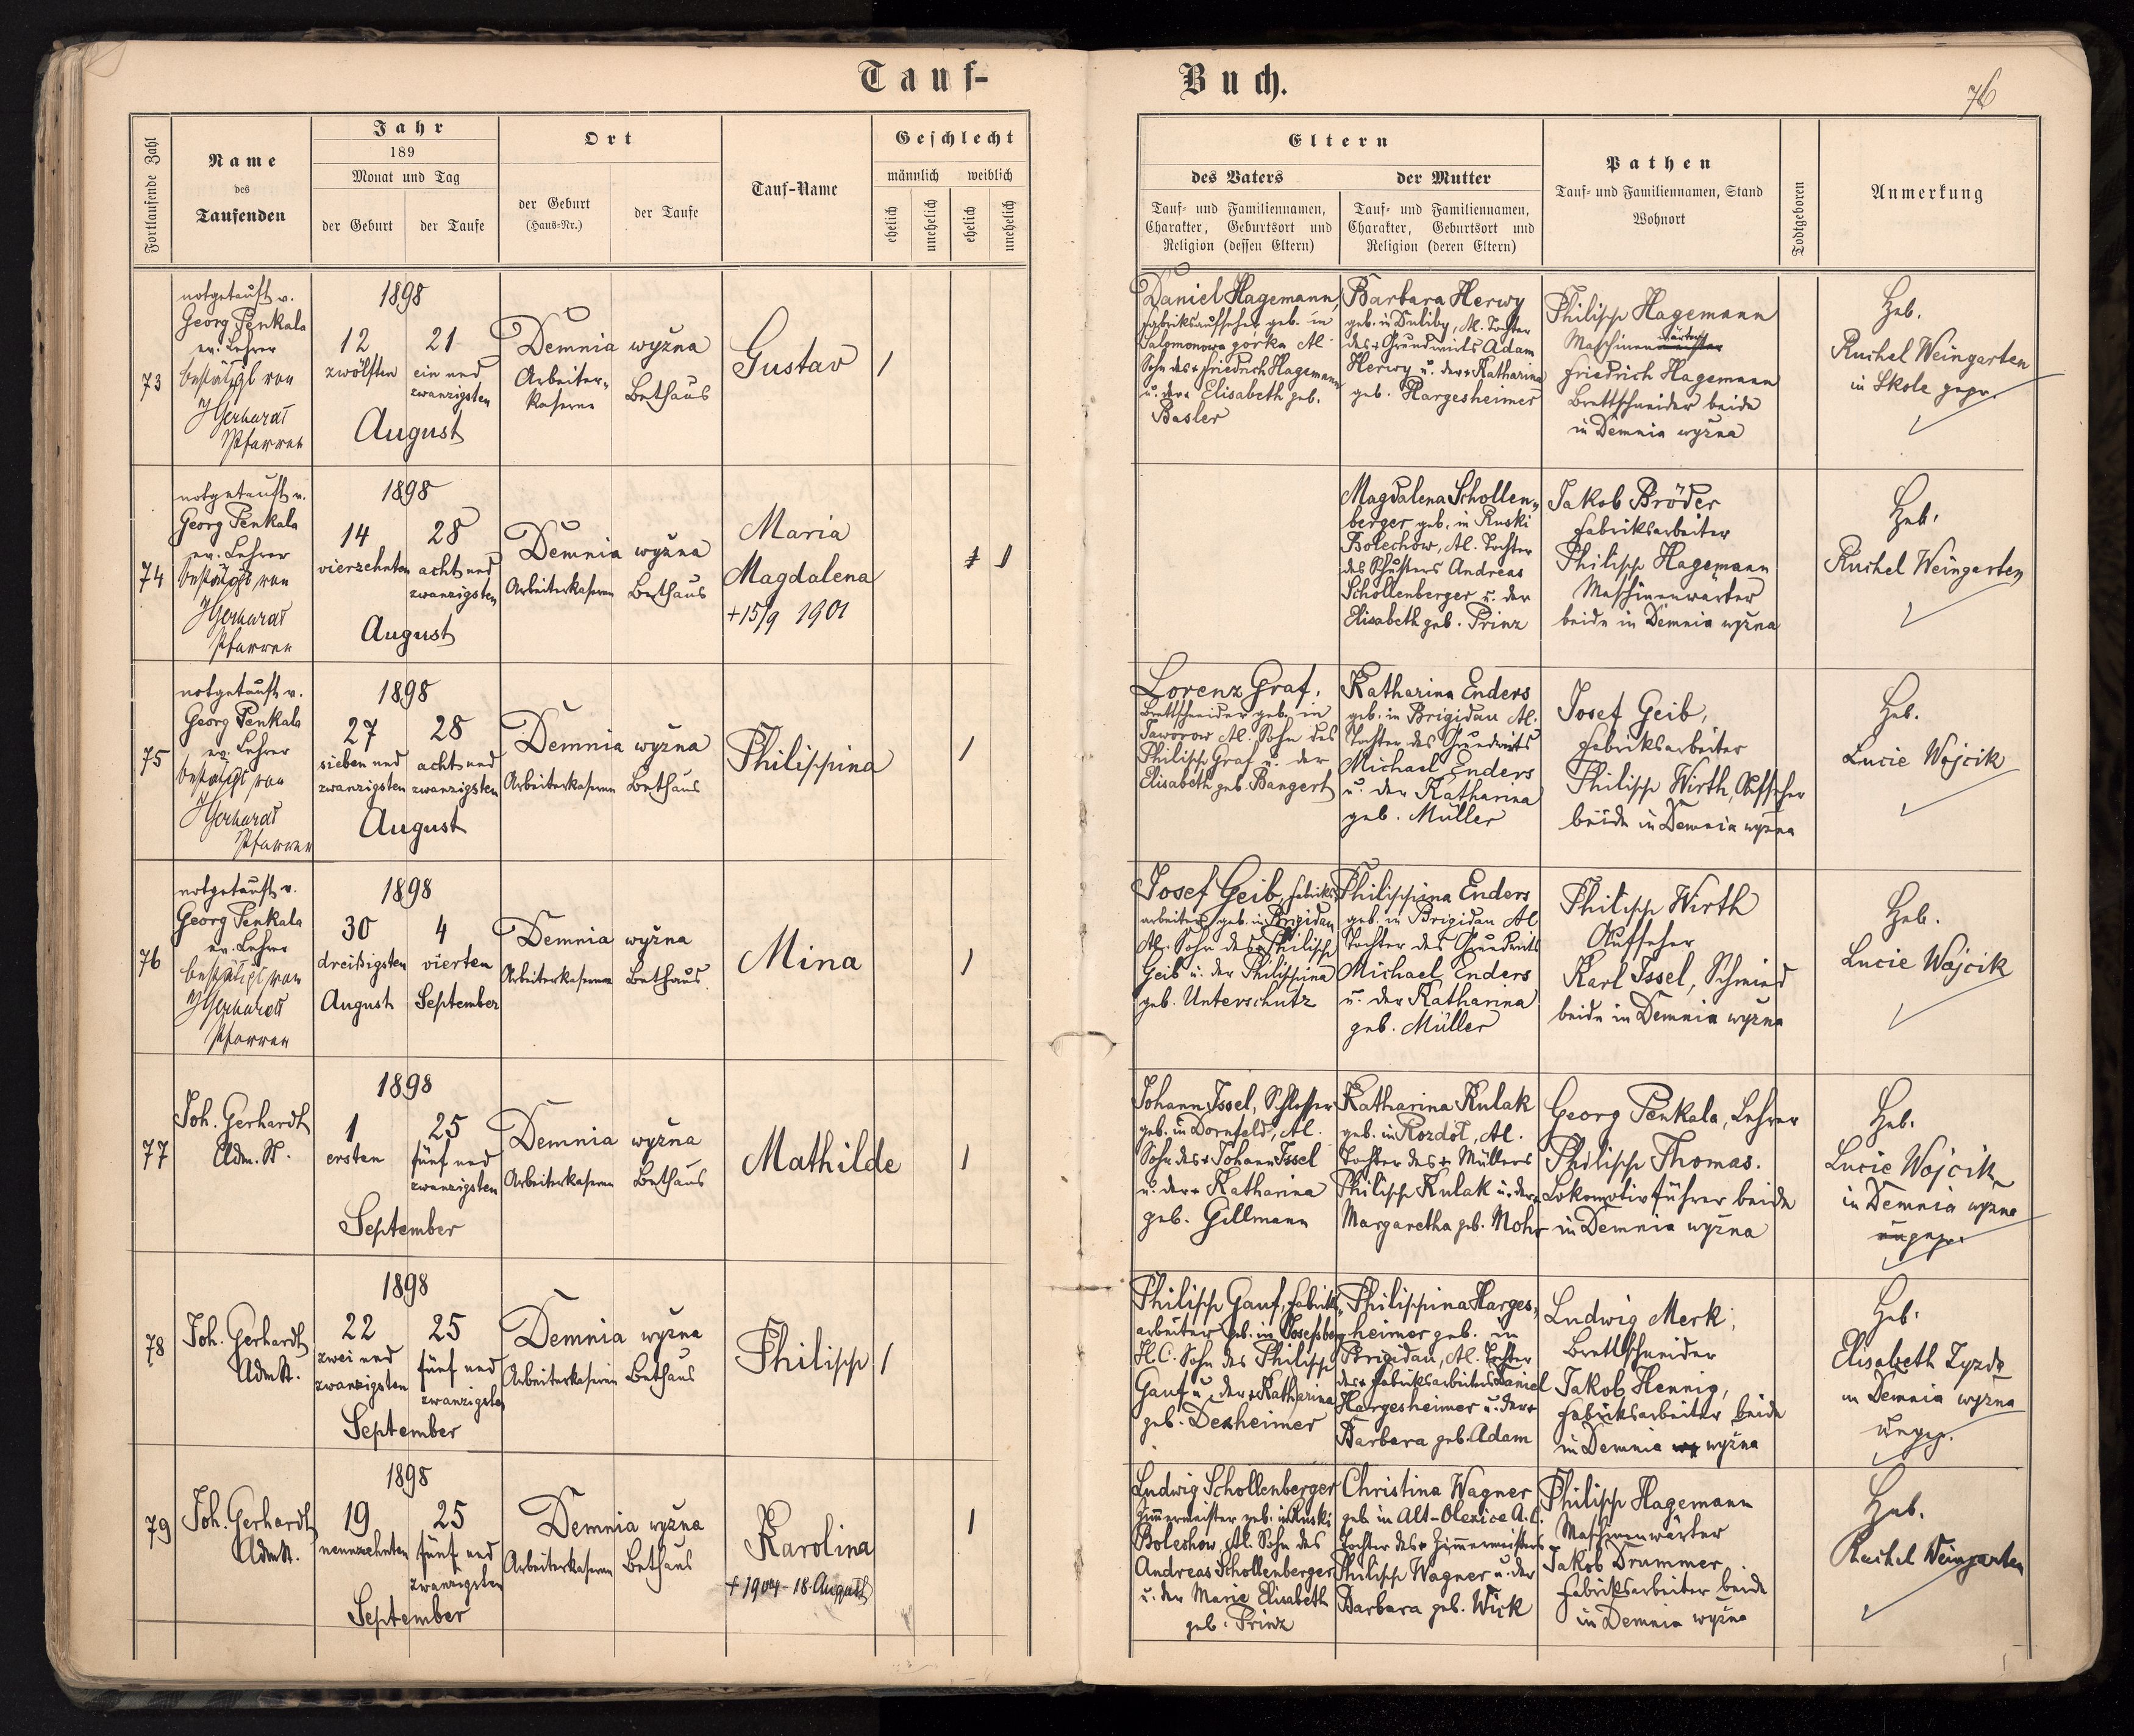 Tauf-
Buch.
76
Fortlaufende Zahl
Name
des
Taufenden
Jahr
189
Monat und Tag
der Geburt
der Taufe
Ort
der Geburt
(Haus-Nr.)
der Taufe
Tauf-Name
Geschlecht
männlich
weiblich
ehelich
unehelich
ehelich
unehelich
Eltern
des Vaters
der Mutter
Tauf- und Familiennamen,
Charakter, Geburtsort und
Religion (dessen Eltern)
Tauf- und Familiennamen,
Charakter, Geburtsort und
Religion (deren Eltern)
Pathen
Tauf- und Familiennamen, Stand
Wohnort
Todtgeboren
Anmerkung
73
notgetauft v.
Georg Penkala
ev. Lehrer
bestätigt von
JGerhardt
Pfarrer
1898
12
zwölften
21
ein und
zwanzigsten
August
Demnia wyžna
Arbeiter-
kaserne
Bethaus
Gustav
1
Daniel Hagemann,
Fabriksaufseher geb. in
Salamonowa gorka Al.
Sohn des + Friedrich Hagemann
u. der + Elisabeth geb.
Basler
Barbara Herwy
geb. in Duliby, Al. Tochter
des + Grundwirts Adam
Herwy u. der + Katharina
geb. Hargesheimer
Philipp Hagemann
Maschinenwärter
Friedrich Hagemann
Brettschneider beide
in Demnia wyžna
Heb.
Ruchel Weingarten
in Skole gepr.
74
notgetauft v.
Georg Penkala
ev. Lehrer
bestätigt von
JGerhardt
Pfarrer
1898
14
vierzehnten
28
acht und
zwanzigsten
August
Demnia wyžna
Arbeiterkaserne
Bethaus
Maria
Magdalena
+ 15/9 1901
1
Magdalena Schollen-
berger geb. in Ruski
Bolechow, Al. Tochter
des Schusters Andreas
Schollenberger u. der
Elisabeth geb. Prinz
Jakob Bröder
Fabriksarbeiter
Philipp Hagemann
Maschinenwärter
beide in Demnia wyžna
Heb.
Ruchel Weingarten
75
notgetauft v.
Georg Penkala
ev. Lehrer
bestätigt von
JGerhardt
Pfarrer
1898
27
sieben und
zwanzigsten
28
acht und
zwanzigsten
August
Demnia wyžna
Arbeiterkaserne
Bethaus
Philippina
1
Lorenz Graf,
Brettschneider geb. in
Jaworow Al. Sohn des
Philipp Graf u. der
Elisabeth geb. Bangert
Katharina Enders
geb. in Brigidau Al.
Tochter des Grundwirts
Michael Enders
u. der Katharina
geb. Müller
Josef Geib,
Fabriksarbeiter
Philipp Wirth, Aufseher
beide in Demnia wyžna
Heb.
Lucie Wojcik
76
notgetauft v.
Georg Penkala
ev. Lehrer
bestätigt von
JGerhardt
Pfarrer
1898
30
dreißigsten
August
4
vierten
September
Demnia wyžna
Arbeiterkaserne
Bethaus
Mina
1
Josef Geib, Fabriks-
arbeiter geb. in Brigidau
Al. Sohn des Philipp
Geib u. der Philippina
geb. Unterschutz
Philippina Enders
geb. in Brigidau Al.
Tochter des Grundwirts
Michael Enders
u. der Katharina
geb. Müller
Philipp Wirth
Aufseher
Karl Issel, Schmied
beide in Demnia wyžna
Heb.
Lucie Wojcik
77
Joh. Gerhardt
Adm. St.
1898
1
ersten
25
fünf und
zwanzigsten
September
Demnia wyžna
Arbeiterkaserne
Bethaus
Mathilde
1
Johann Issel, Schlosser
geb. in Dornfeld, Al.
Sohn des + Johann Issel
u. der + Katharina
geb. Gillmann
Katharina Kulak
geb. in Rozdół, Al.
Tochter des + Müllers
Philipp Kulak u. der +
Margaretha geb. Mohr
Georg Penkala, Lehrer
Philipp Thomas.
Lokomotivführer beide
in Demnia wyžna
Heb.
Lucie Wojcik
in Demnia wyžna
ungepr.
78
Joh. Gerhardt
Adm St.
1898
22
zwei und
zwanzigsten
25
fünf und
zwanzigsten
September
Demnia wyžna
Arbeiterkaserne
Bethaus
Philipp
1
Philipp Gauf, Fabriks-
arbeiter geb. in Josefsberg
H.C. Sohn des Philipp
Gauf u. der + Katharina
geb. Dexheimer
Philippina Harges-
heimer geb. in
Brigidau, Al. Tochter
des + Fabriksarbeiters Daniel
Hargesheimer u. der +
Barbara geb. Adam
Ludwig Merk,
Brettschneider
Jakob Hennig,
Fabriksarbeiter beide
in Demnia wyžna
Heb.
Elisabeth
in Demnia wyžna
ungepr.
79
Joh. Gerhardt
Adm St.
1898
19
neunzehnten
25
fünf und
zwanzigsten
September
Demnia wyžna
Arbeiterkaserne
Bethaus
Karolina
+ 1904 - 18. August
1
Ludwig Schollenberger
Zimmermeister geb. in Ruski
Bolechow, Al. Sohn des
Andreas Schollenberger
u. der Marie Elisabeth
geb. Prinz
Christina Wagner
geb. in Alt-Olexice A.C.
Tochter des + Zimmermeisters
Philipp Wagner u. der
Barbara geb. Wick
Philipp Hagemann
Maschinenwärter
Jakob Drummer
Fabriksarbeiter beide
in Demnia wyžna
Heb.
Ruchel Weingarten